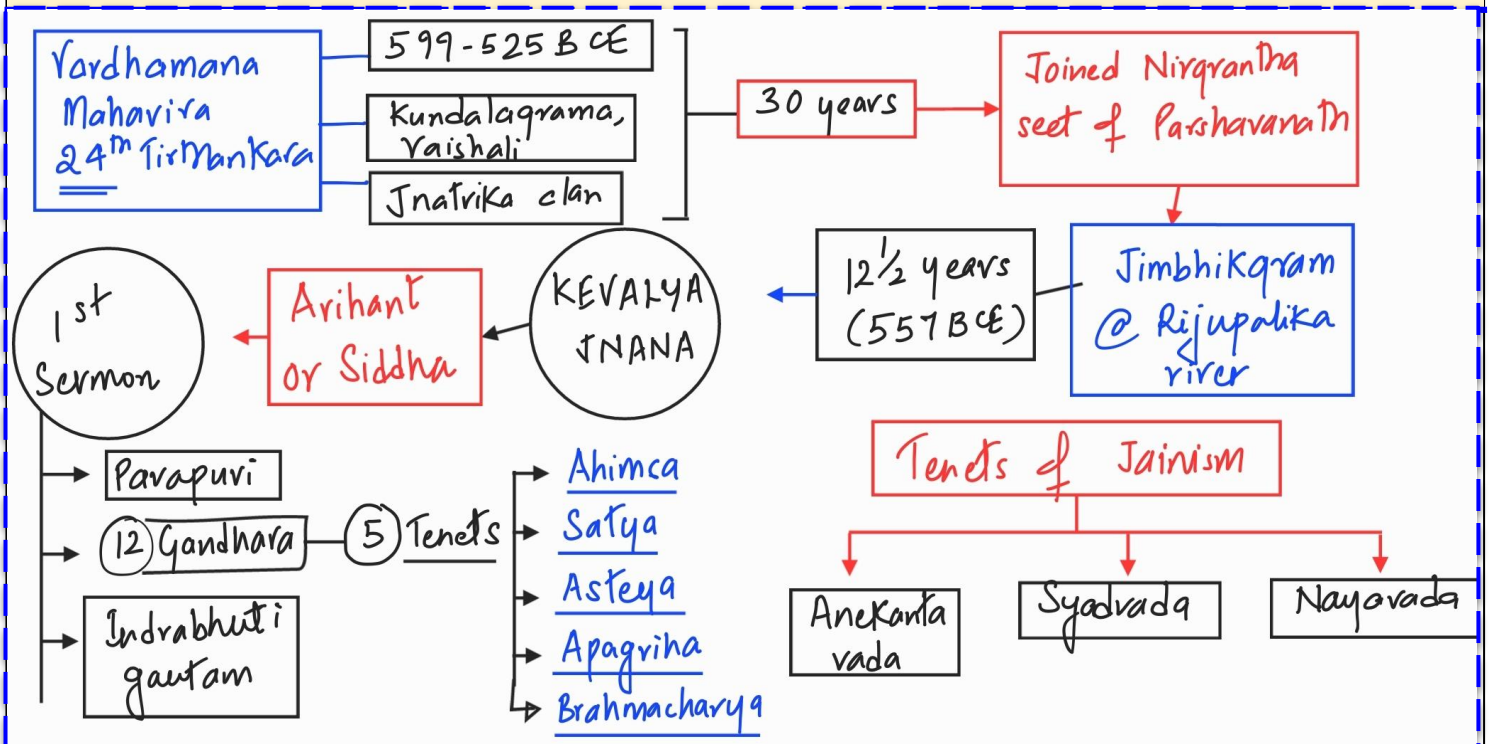 Vardhamana
Mahavira
24th Tirthankara
599-525 BCE
Kundalagrama,
Vaishali
Jnatrika clan
30 years
Joined Nirgrantha
sect of Parshavanath
Jimbhikgram
@ Rijupalika
river
12 1/2 years
(557 BCE)
KEVALYA
JNANA
Arihant
or Siddha
1st
Sermon
Pavapuri
12 Gandhara
5 Tenets
Indrabhuti
gautam
Ahimca
Satya
Asteya
Apagriha
Brahmacharya
Tenets of Jainism
Anekanta
vada
Syadvada
Nayavada